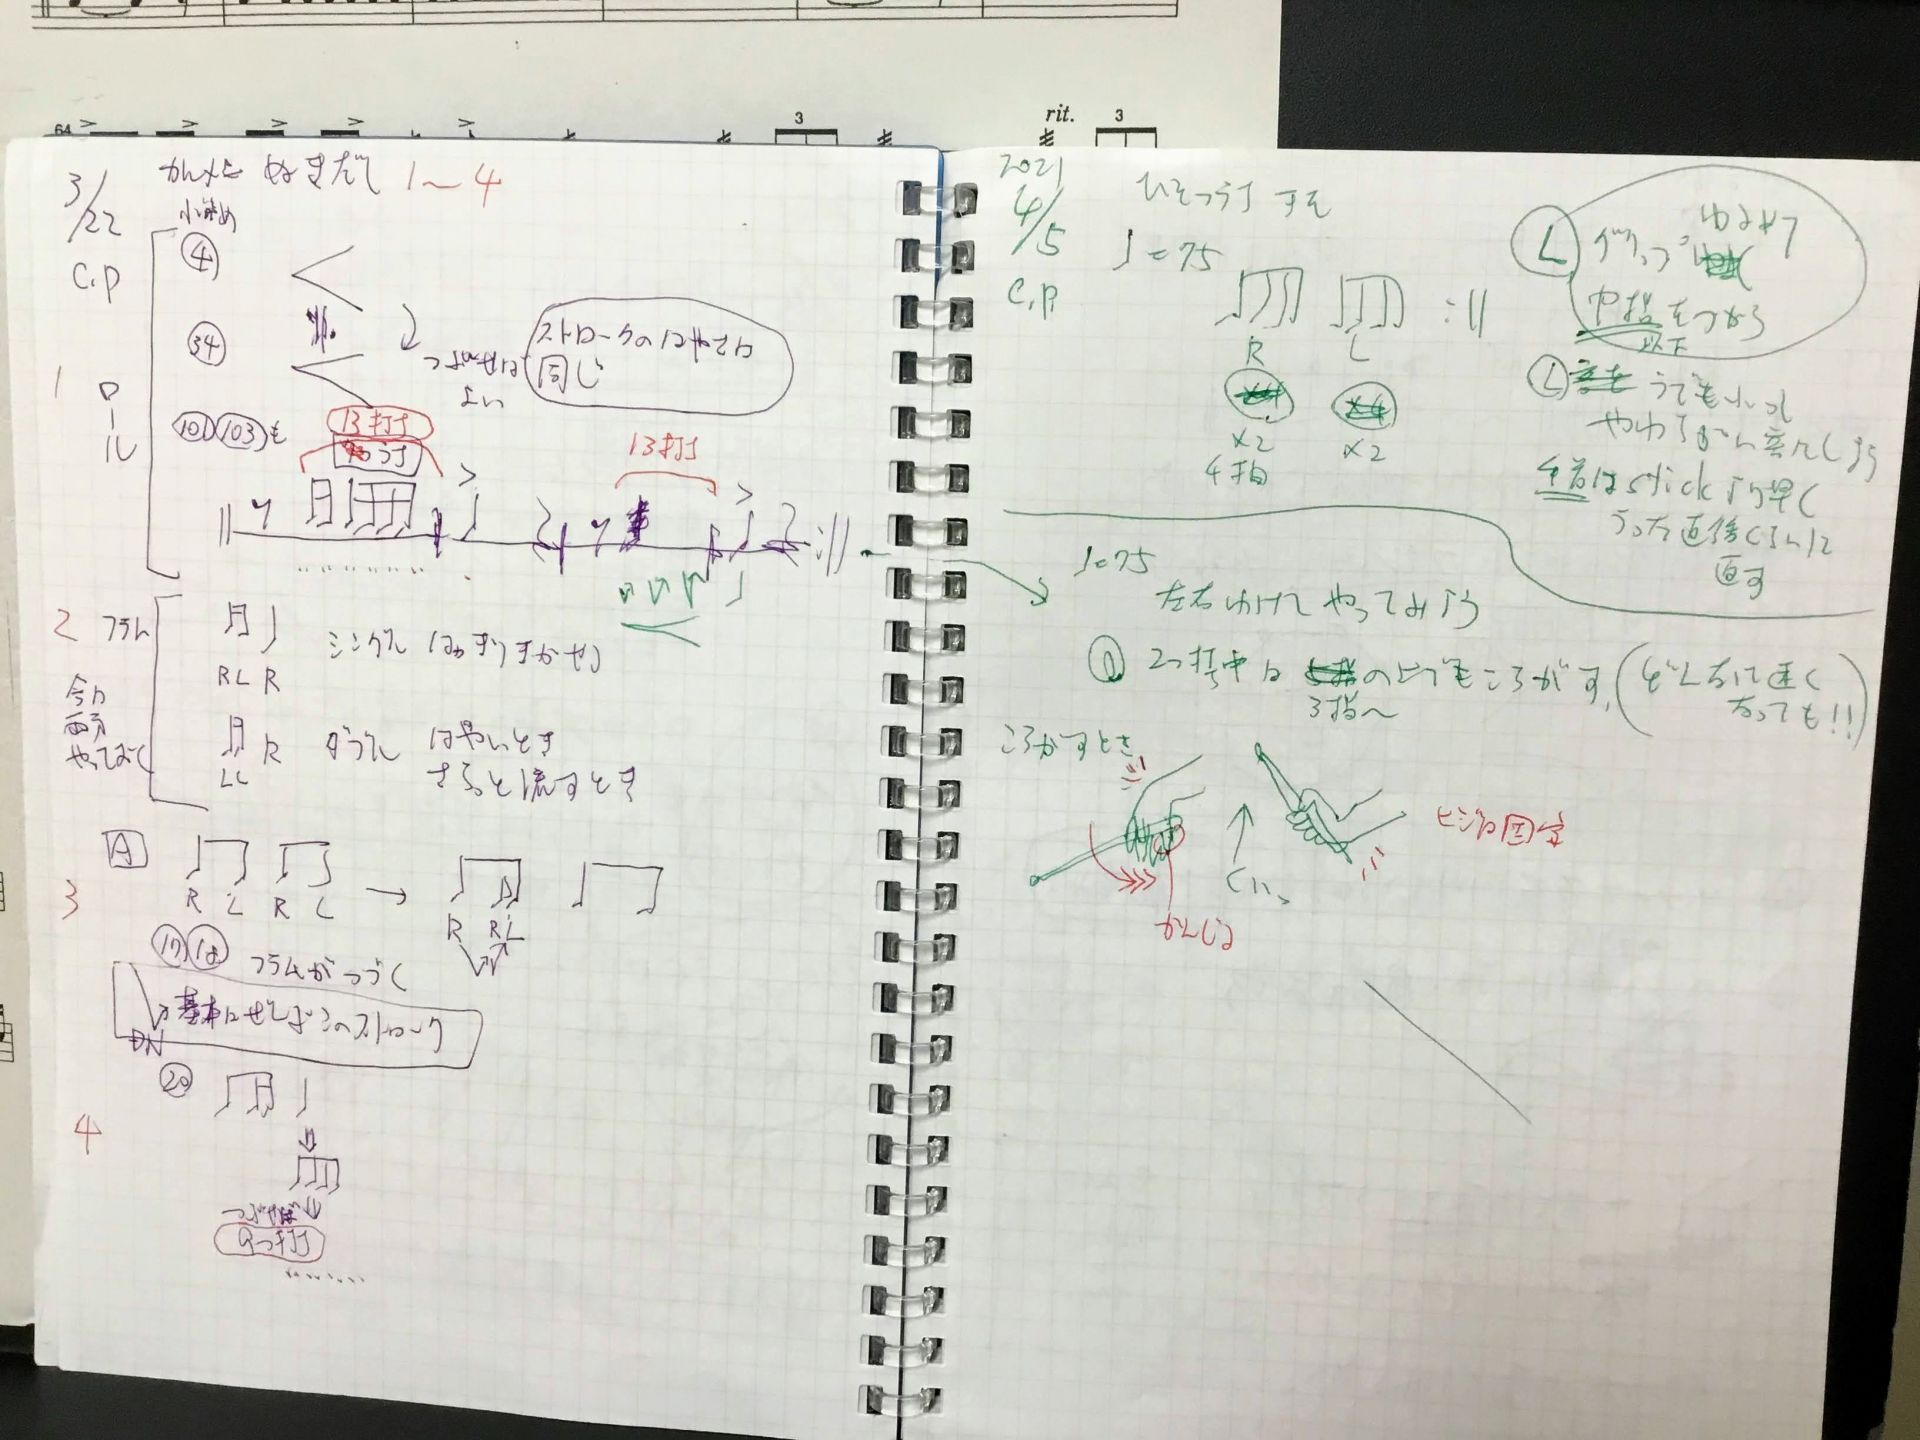 64
3
rit.
3
3/22
C.P
1〜4
小節め
④
㉞
つぶやけば
よい
ストロークのはやさは
同じ
1
ロール
(101) (103) も
13打
13打
2
フラム
RL R
シングル はっきりきかせる
今日
両方
やっておく
LL R
ダブル はやいとき
さらっと流すとき
3
A
R L R L
→
R RL
⑰ ⑱ フラムがつづく
基本はぜんぶこのストローク
DN
⑳
4
つぶやけば
9つ打
2021
4/5
C.P
♩=75
R L
×4 ×4
×2 ×2
4拍
Ⓛ グリップ ゆるめて
中指をつかう
以下
Ⓛ うでも小さく
やわらかい音にしよう
手首はstickより早く
うった直後くらいに
直す
♩=75
左右わけてやってみよう
2つ打中は のどでもころがす
3指へ
(どんなに速く
なっても!!)
ころがすとき
ヒジは固定
かんじる